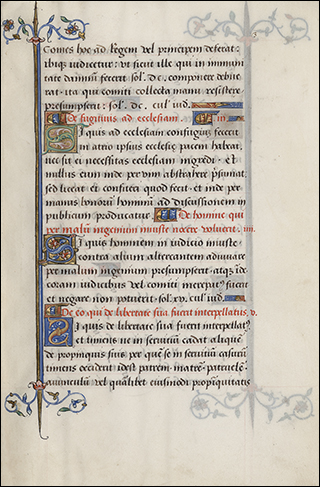 Comes hoc ad Regem vel principem deferat.
ibiq; iudicetur. ut sicut ille qui in immuni
tate damnū fecerit sol. dc. componere debue
rat. ita qui comiti collecta manu resistere
presumpserit. sol. dc. cul iud.
De fugitivis ad ecclesiam. iii.
Si quis ad ecclesiam confugiū fecerit
in atrio ipsius ecclesię pacem habeat.
nec sit ei necessitas ecclesiam ingredi. et
nullus eum inde per vim abstrahere
sed liceat ei confiteri quod fecit. et inde per
manus bonorū hominū ad discussionem in
publicum producatur. De homine qui
per malū ingenium iniuste nocere voluerit. iiii.
Si quis hominem in iudicio iniuste
contra alium altercantem adiuvare
per malum ingenium presumpserit. atq;
coram iudicibus vel comite increpat' fuerit
et negare non potuerit. sol. xv. cul iud.
De eo qui de libertate sua fuerit interpellatus. v.
Si quis de libertate sua fuerit interpellat'
et timens ne in servitiū cadat aliquē
de propinquis suis per quē se in servitiū casurū
timens occiderit. idest patrem. matrē. patruelē.
avunculū. vel quālibet eiusmodi propinquitatis